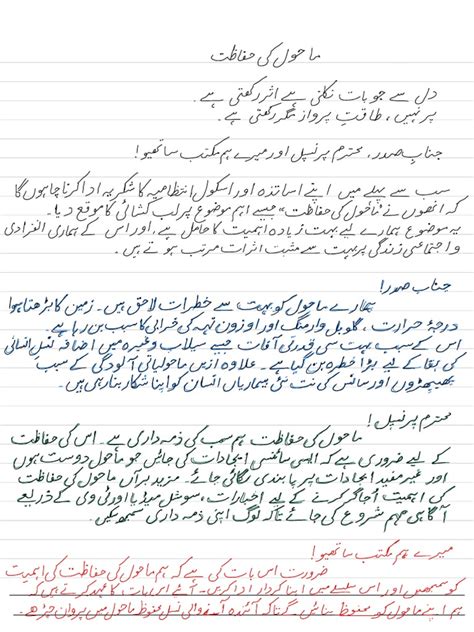 ماحول کی حفاظت
دل سے جو بات نکلتی ہے اثر رکھتی ہے۔
پر نہیں، طاقتِ پرواز مگر رکھتی ہے۔
جنابِ صدور، محترم پرنسپل اور میرے ہم مکتب ساتھیو!
سب سے پہلے میں اپنے اساتذہ اور اسکول انتظامیہ کا شکریہ ادا کرنا چاہوں گا
کہ انھوں نے "ماحول کی حفاظت" جیسے اہم موضوع پر لب کشائی کا موقع دیا۔
یہ موضوع ہمارے لیے بہت زیادہ اہمیت کا حامل ہے، اور اس کے ہماری انفرادی
و اجتماعی زندگی پر بہت سے مثبت اثرات مرتب ہوتے ہیں۔
جنابِ صدور!
ہمارے ماحول کو بہت سے خطرات لاحق ہیں۔ زمین کا بڑھتا ہوا
درجۂ حرارت، گلوبل وارمنگ اور اوزون تہہ کی خرابی کا سبب بن رہا ہے۔
اس کے سبب بہت سی قدرتی آفات جیسے سیلاب وغیرہ میں اضافہ نسلِ انسانی
کی بقا کے لیے بڑا خطرہ بن گیا ہے۔ علاوہ ازیں ماحولیاتی آلودگی کے سبب
پھیپھڑوں اور سانس کی نت نئی بیماریاں انسان کو اپنا شکار بنا رہی ہیں۔
محترم پرنسپل!
ماحول کی حفاظت ہم سب کی ذمہ داری ہے۔ اس کی حفاظت
کے لیے ضروری ہے کہ ایسی سائنسی ایجادات کی جائیں جو ماحول دوست ہوں
اور غیر مفید ایجادات پر پابندی لگائی جائے۔ مزید برآں ماحول کی حفاظت
کی اہمیت اُجاگر کرنے کے لیے اخبارات، سوشل میڈیا اور ٹی وی کے ذریعے
آگاہی مہم شروع کی جائے تاکہ لوگ اپنی ذمہ داری سمجھیں۔
میرے ہم مکتب ساتھیو!
ضرورت اس بات کی ہے کہ ہم ماحول کی حفاظت کی اہمیت
کو سمجھیں اور اس سلسلے میں اپنا کردار ادا کریں۔ آئیے اس بات کا عہد کرتے ہیں کہ
ہم اپنے ماحول کو محفوظ بنائیں گے تاکہ آئندہ آنے والی نسل محفوظ ماحول میں پروان چڑھے۔